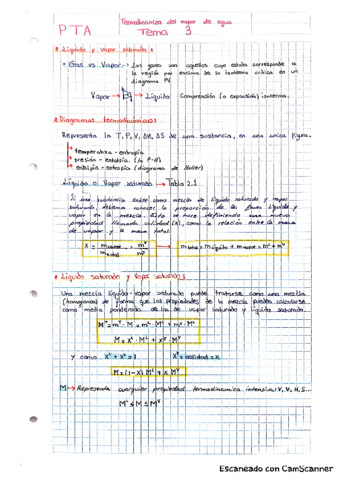 PTA
Termodinámica del vapor de agua
Tema 3
* Líquido y vapor saturado:
* Gas vs Vapor → Los gases son aquellos cuyo estado corresponde a
la región por encima de la isoterma crítica en un
diagrama PV
Vapor → → Líquido Compresión (o expansión) isoterma.
* Diagramas termodinámicos:
Representa la T, P, V, ΔH, ΔS de una sustancia, en una única figura.
→ temperatura - entropía
→ presión - entalpía (ln P-H)
→ entalpía - entropía (diagrama de Mollier)
Líquido o Vapor saturado → Tabla 2.1
Si una sustancia existe como mezcla de líquido saturado y vapor
saturado debemos conocer la proporción de las fases líquida y
vapor en la mezcla. Esto se hace definiendo una nueva
propiedad llamada calidad (x), como la relación entre la masa
de vapor y la masa total.
X = m vapor / m total = m^V / m^T → m total = m líquido + m vapor = m^L + m^V
* Líquido saturado y Vapor saturado:
Una mezcla líquido-vapor saturado puede tratarse como una mezcla
(homogénea) de forma que las propiedades de la mezcla pueden calcularse
como media ponderada de las de vapor saturado y líquido saturado.
M^T = m^T · M = m^L · M^L + m^V · M^V
M = x^L · M^L + x^V · M^V
y como x^L + x^V = 1 X^V = calidad = X
M = (1-x) M^L + x M^V
M → Representa cualquier propiedad termodinámica intensiva: V, U, H, S...
M^L ≤ M ≤ M^V
Escaneado con CamScanner